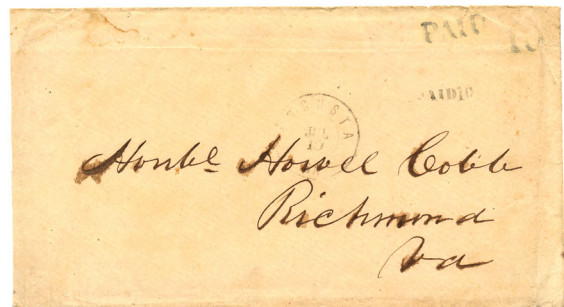 PAID
10
PAID10
AUGUSTA
JUL
Honble Howell Cobb
Richmond
Va